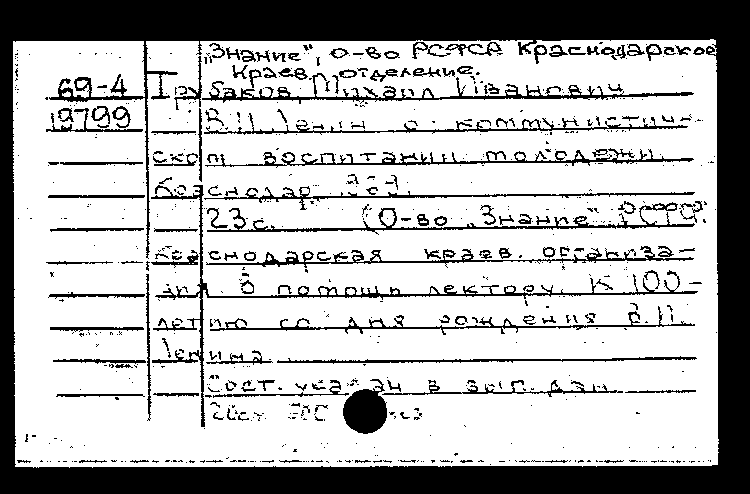 „Знание", О-во РСФСР Краснодарское
Краев. отделение.
69-4 Трубаков, Михаил Иванович
19799 В.И. Ленин о коммунистиче-
ском воспитании молодежи.
Краснодар, 969.
23 с. (О-во „Знание" РСФСР.
Краснодарская краев. организа-
ция. В помощь лектору. К 100-
летию со дня рождения В.И.
Ленина
Сост. указан в вып. дан.